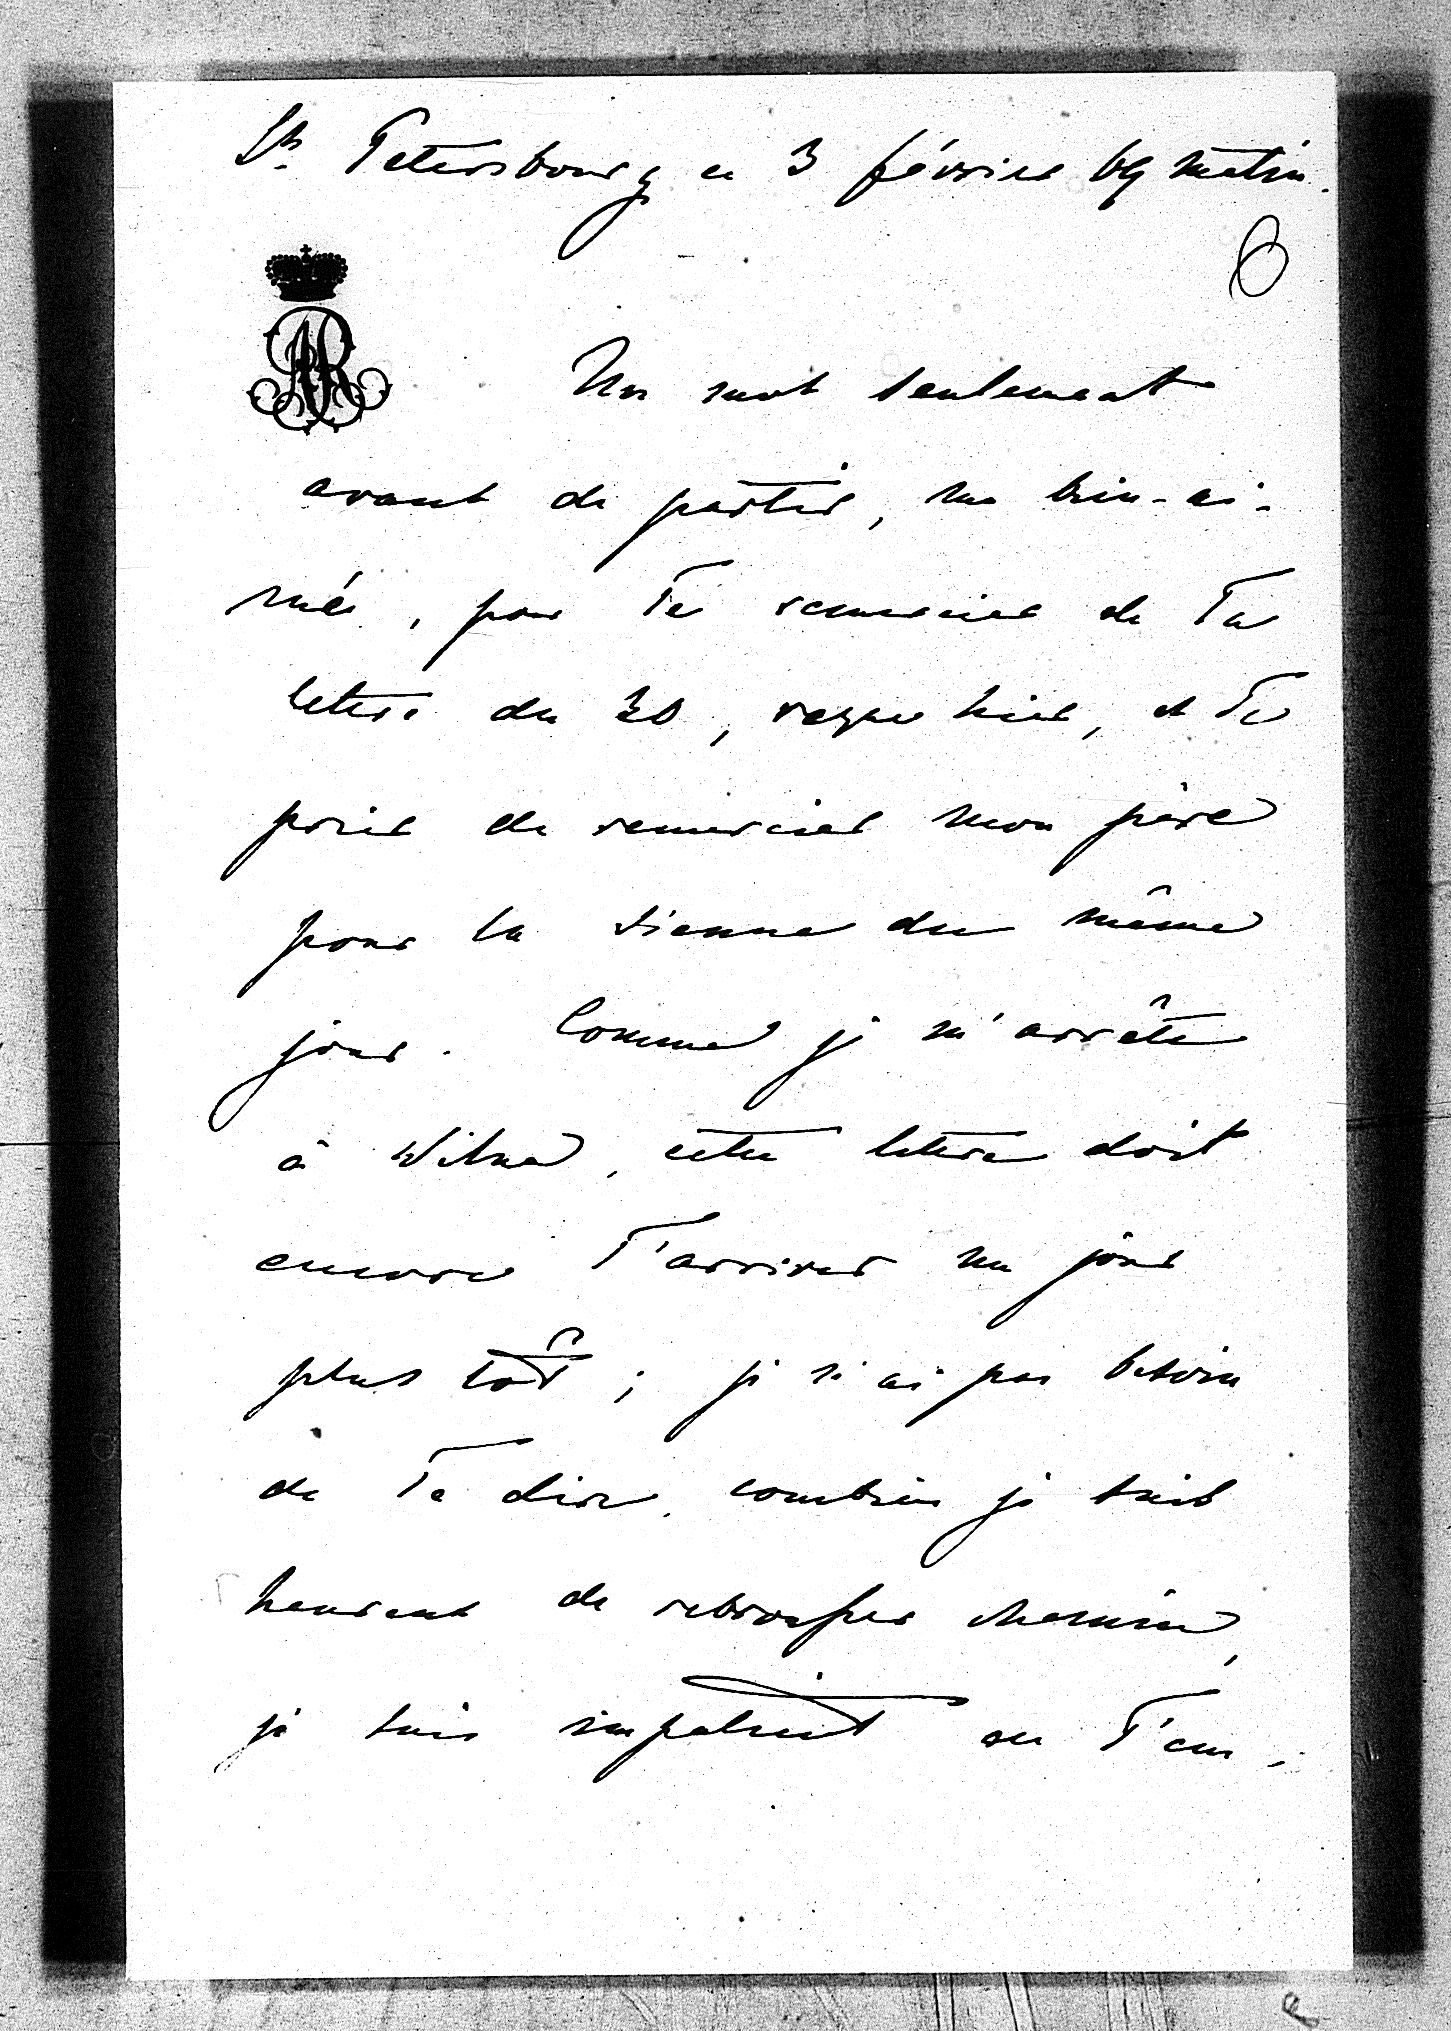 St. Petersbourg ce 3 février 69 matin.
6
AR
Un mot seulement
avant de partir, ma bien-ai-
mée, pour Te remercier de Ta
lettre du 30, reçue hier, et Te
prier de remercier mon père
pour la sienne du même
jour. Comme je m'arrête
à Wilna, cette lettre doit
encore T'arriver un jour
plus tôt; je n'ai pas besoin
de Te dire combien je suis
heureux de rebrousser chemin,
je suis impatient de T'em-